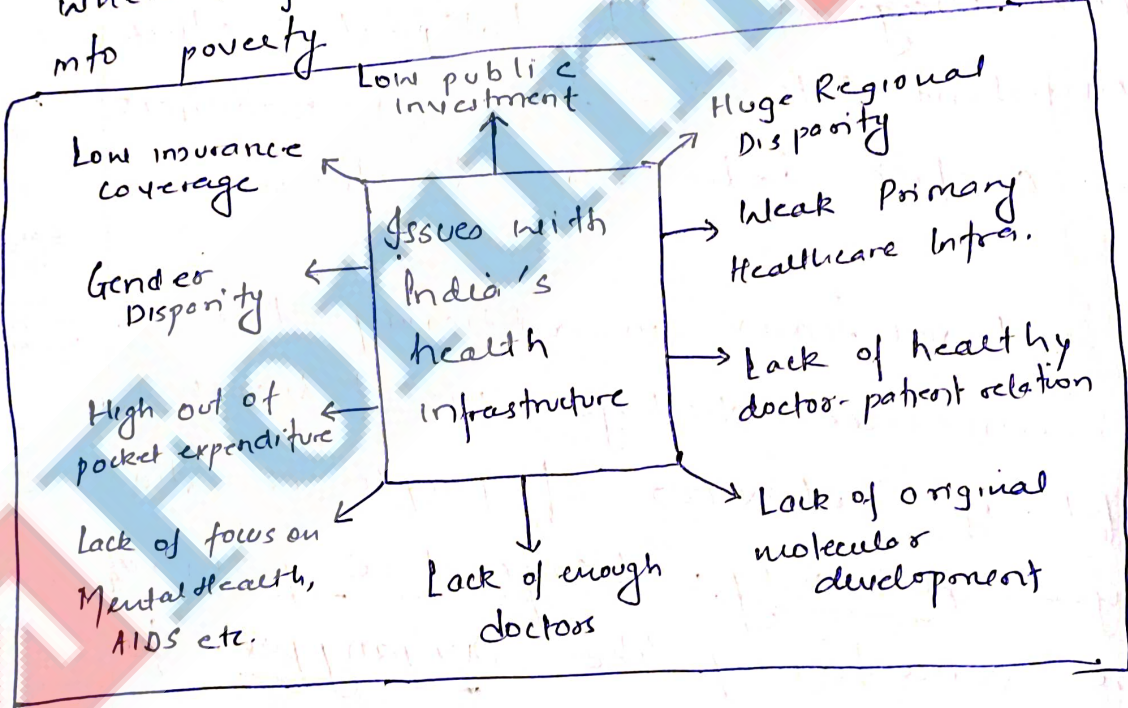 into poverty
Low public
investment
Huge Regional
Disparity
Low insurance
coverage
Weak Primary
Healthcare Infra.
Issues with
India's
health
infrastructure
Gender
Disparity
Lack of healthy
doctor-patient relation
High out of
pocket expenditure
Lack of original
molecular
development
Lack of focus on
Mental Health,
AIDS etc.
Lack of enough
doctors
Forum